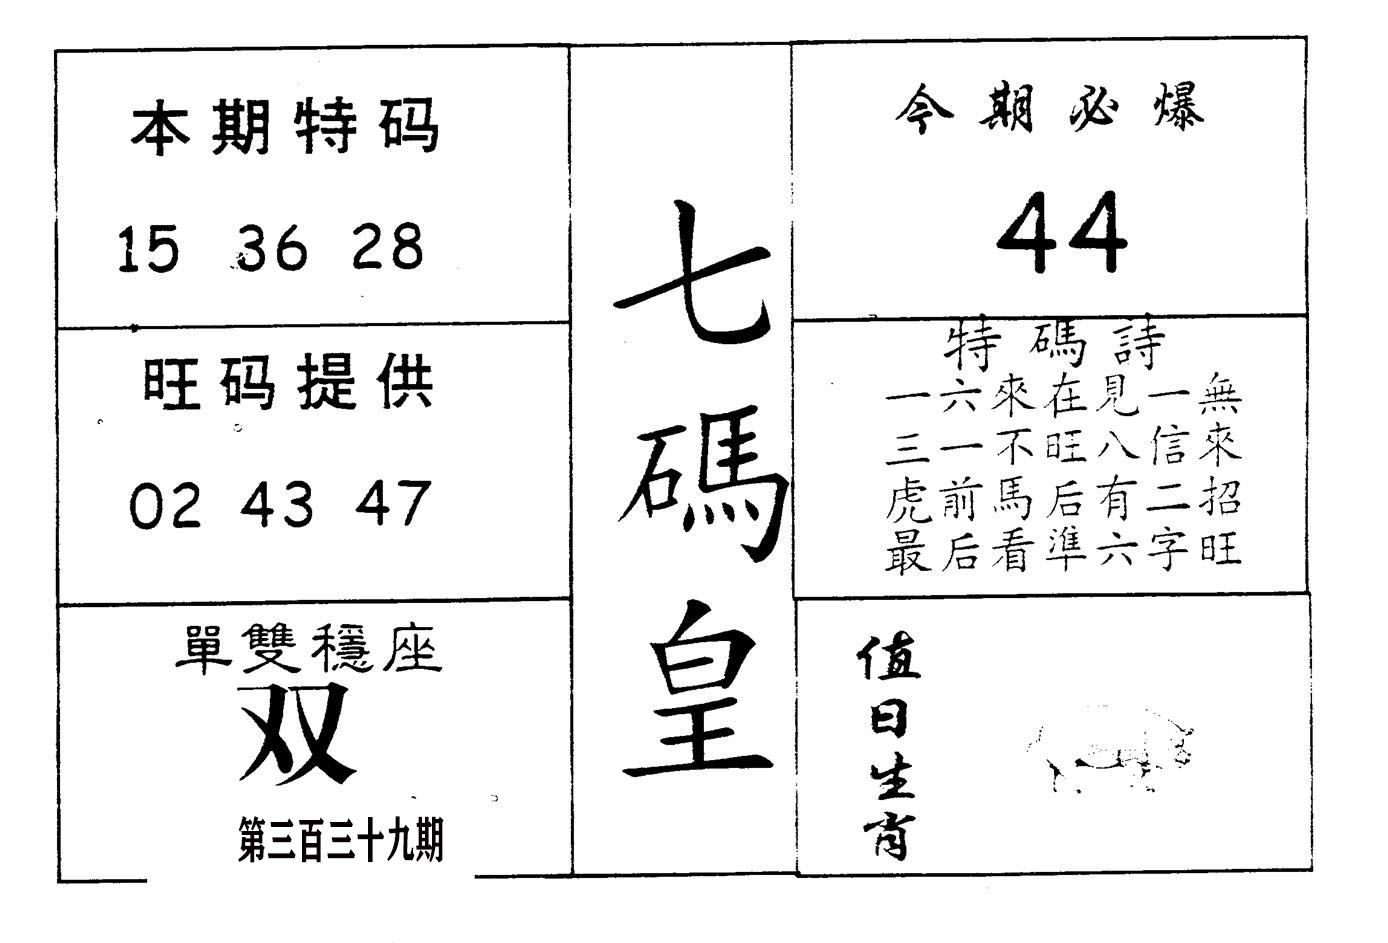 本期特码
15 36 28
旺码提供
02 43 47
單雙穩座
双
第三百三十九期
七碼皇
今期必爆
44
特碼詩
一六來在見一無
三一不旺八信來
虎前馬后有二招
最后看準六字旺
值日生肖